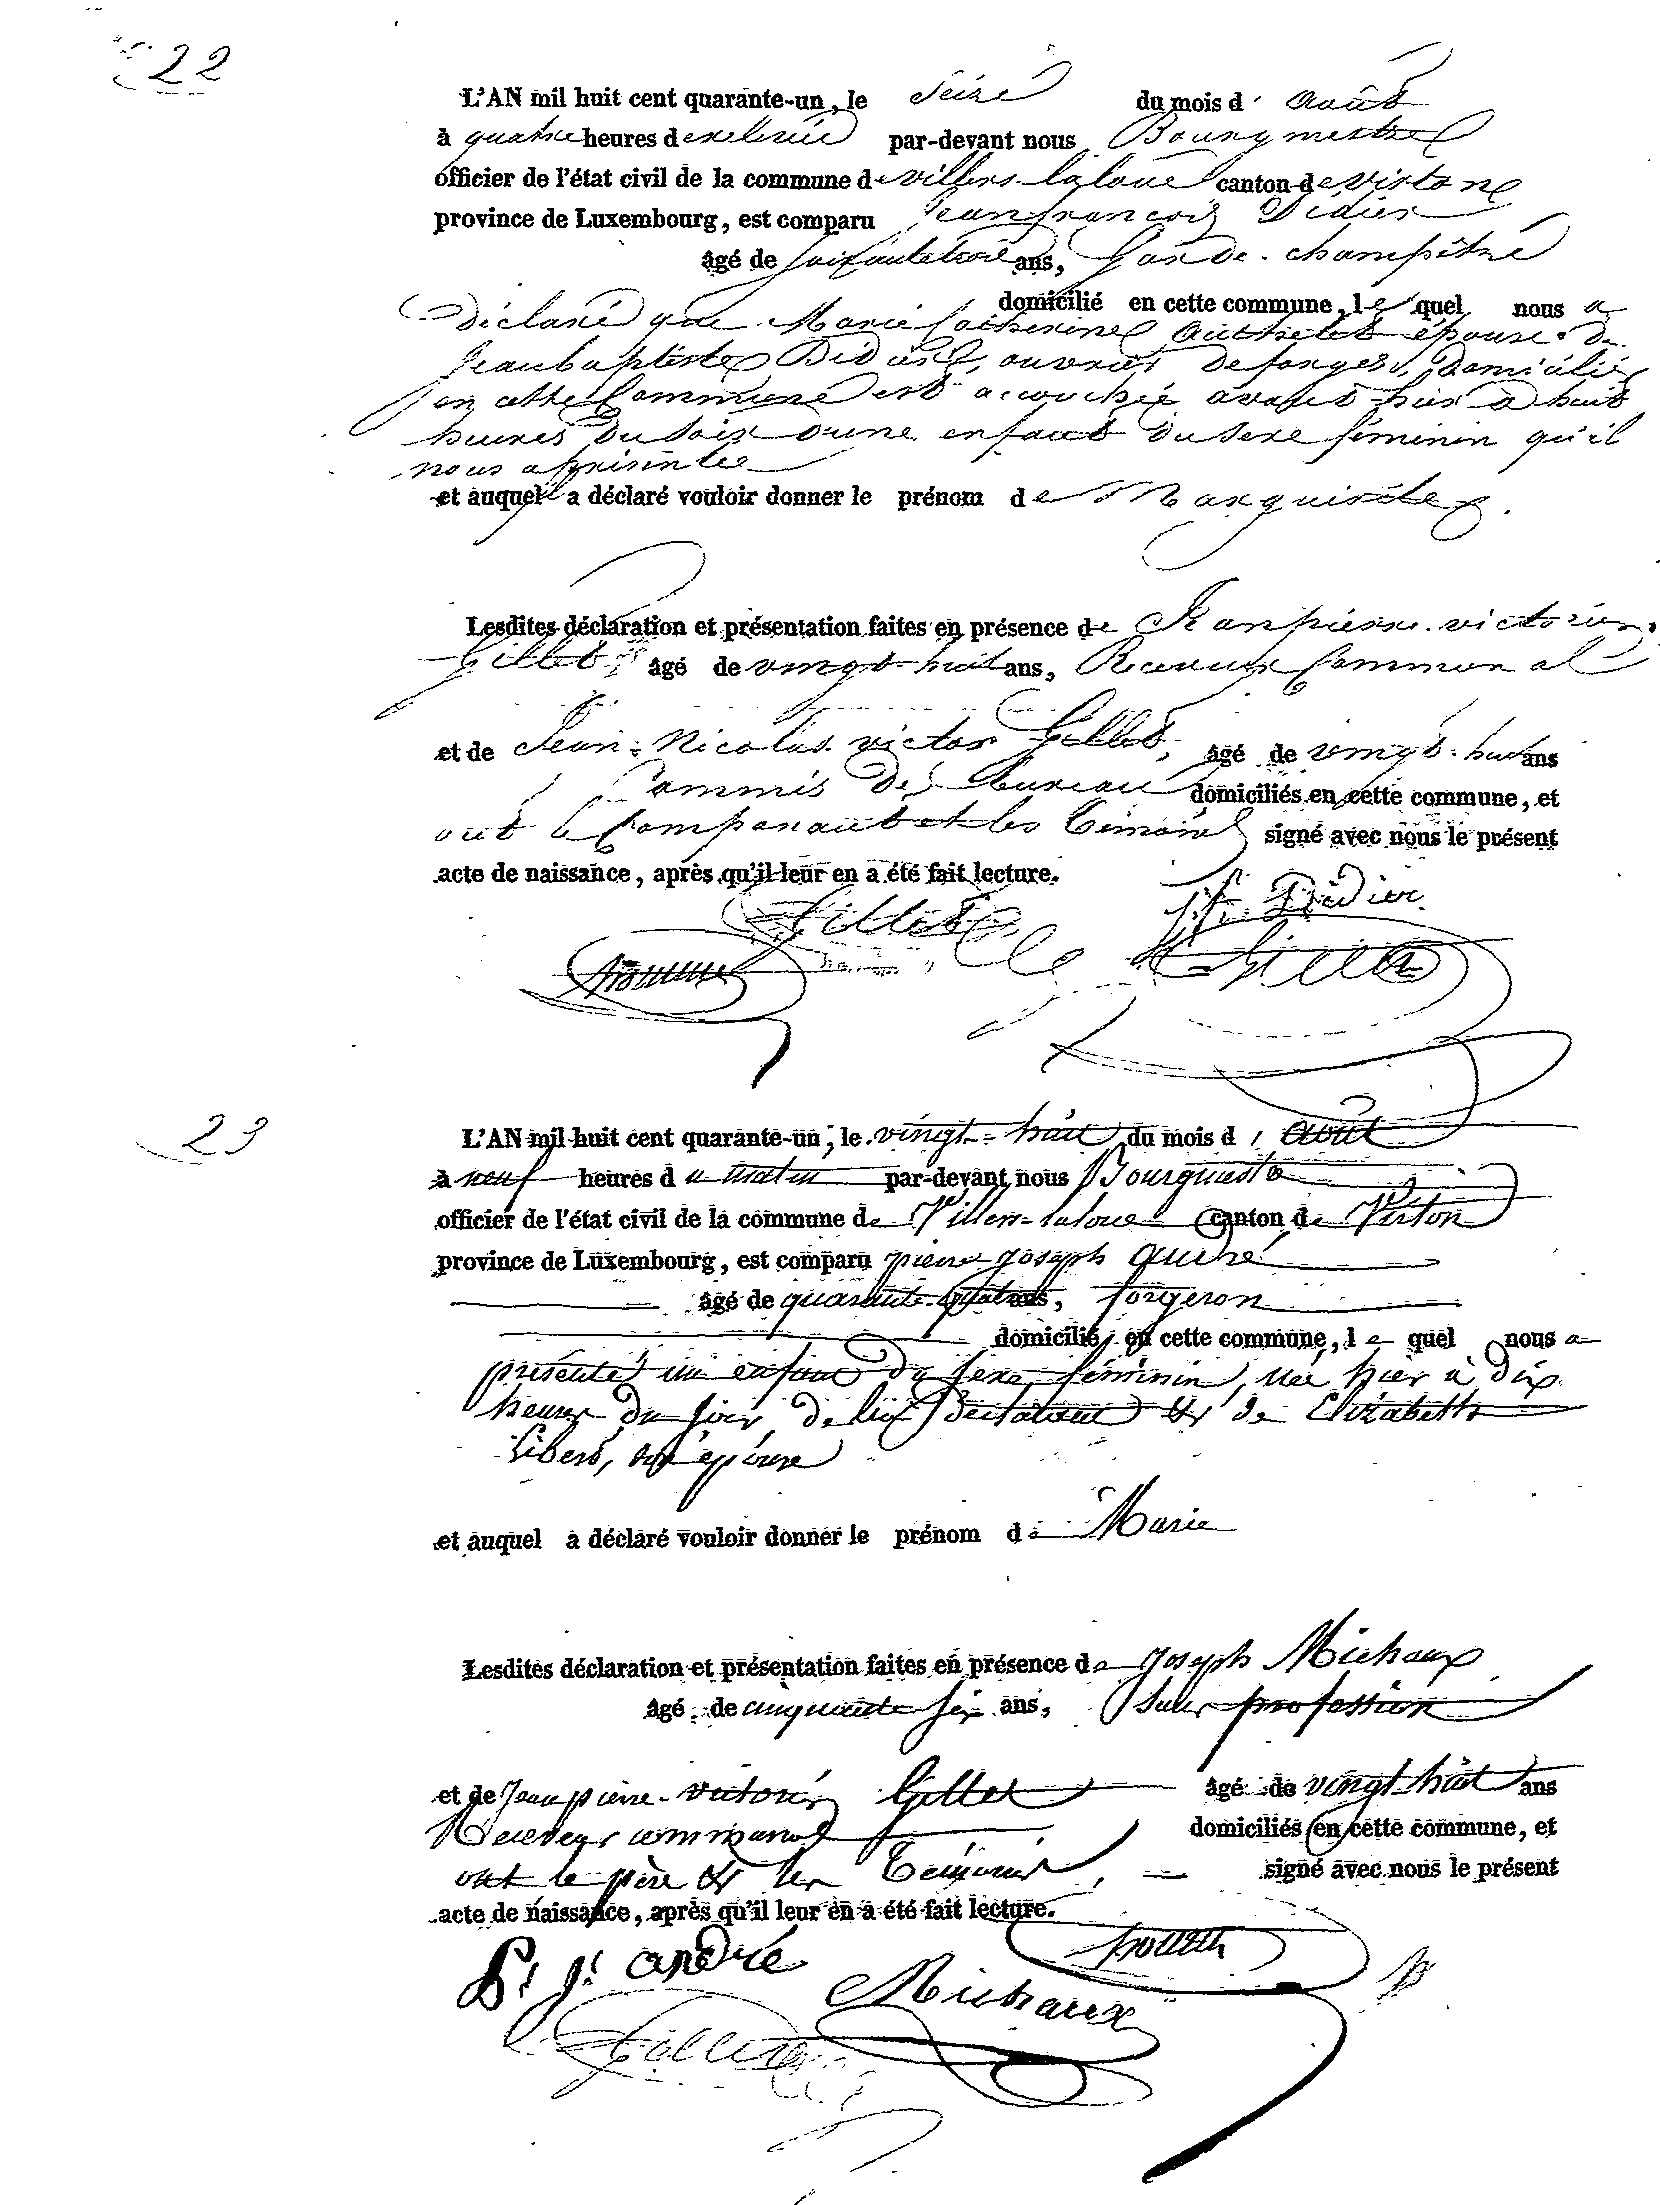 22
L'AN mil huit cent quarante-un, le Seize du mois d'août
à quatre heures de relevée par-devant nous Bourgmestre
officier de l'état civil de la commune de villers la loue canton de virton
province de Luxembourg, est comparu Jean françois Didier
âgé de soixante trois ans, Garde-champêtre
domicilié en cette commune, le quel nous a
déclaré que Marie Catherine authelet épouse de
Jean baptiste Didier, ouvrier de forges, domicilié
en cette Commune est accouchée avant hier à huit
heures du soir d'une enfant du sexe féminin qu'il
nous a présentée
et auquel il a déclaré vouloir donner le prénom de Marguerite.
Lesdites déclaration et présentation faites en présence de Jean pierre victorin
Gillet âgé de vingt-huit ans, Receveur Communal
et de Jean-Nicolas victor Gillet, âgé de vingt-huit ans
Commis de Bureau domiciliés en cette commune, et
ont le Comparant et les témoins signé avec nous le présent
acte de naissance, après qu'il leur en a été fait lecture.
J. f. Didier
Gillet
Gillet
23
L'AN mil huit cent quarante-un, le vingt-huit du mois d'août
à neuf heures du matin par-devant nous Bourgmestre
officier de l'état civil de la commune de Villers-laloue canton de Virton
province de Luxembourg, est comparu pierre joseph André
âgé de quarante-quatre ans, forgeron
domicilié en cette commune, le quel nous a
présenté un enfant du sexe féminin, née hier à dix
heures du soir, de lui déclarant et de Elizabeth
Libert, son épouse
et auquel a déclaré vouloir donner le prénom de Marie
Lesdites déclaration et présentation faites en présence de joseph Michaux
âgé de cinquante six ans, Sans profession
et de jean pierre-victorin Gillet âgé de vingt-huit ans
Receveur communal domiciliés en cette commune, et
ont le père et les témoins, signé avec nous le présent
acte de naissance, après qu'il leur en a été fait lecture.
P. J. andré
Michaux
Gillet